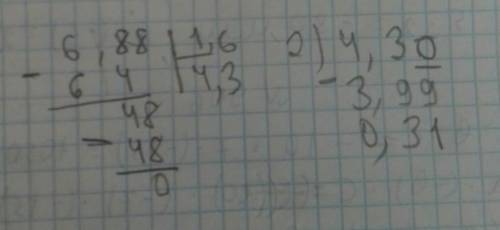 6,88 | 1,6
- 6 4 | 4,3
48
- 48
0
2) 4,30
- 3,99
0,31